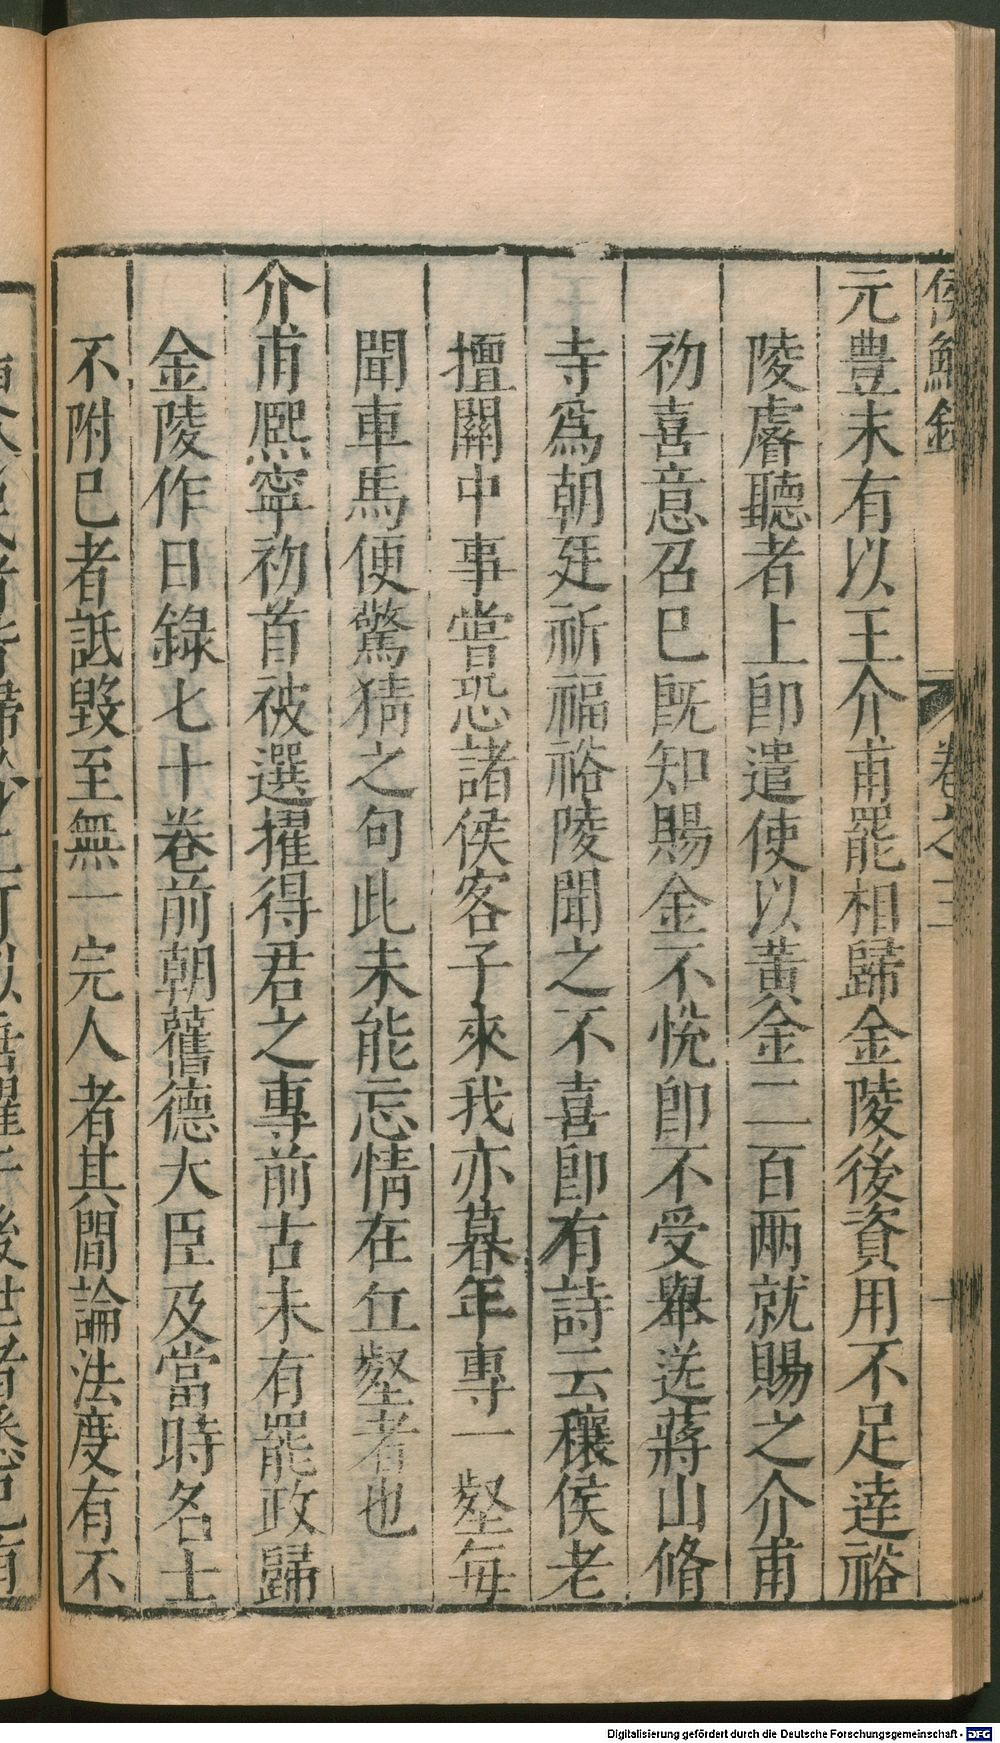 侯鯖録 卷之三 十
元豊末有以王介甫罷相歸金陵後資用不足達裕
陵睿聽者上卽遣使以黃金二百兩就賜之介甫
初喜意召巳旣知賜金不悅卽不受舉送蔣山脩
寺爲朝廷祈福裕陵聞之不喜卽有詩云穰侯老
擅關中事嘗恐諸侯客子來我亦暮年專一壑每
聞車馬便驚猜之句此未能忘情在丘壑者也
介甫熈寧初首被選擢得君之專前古未有罷政歸
金陵作日錄七十卷前朝舊德大臣及當時名士
不附巳者詆毀至無一完人者其間論法度有不
Digitalisierung gefördert durch die Deutsche Forschungsgemeinschaft - DFG